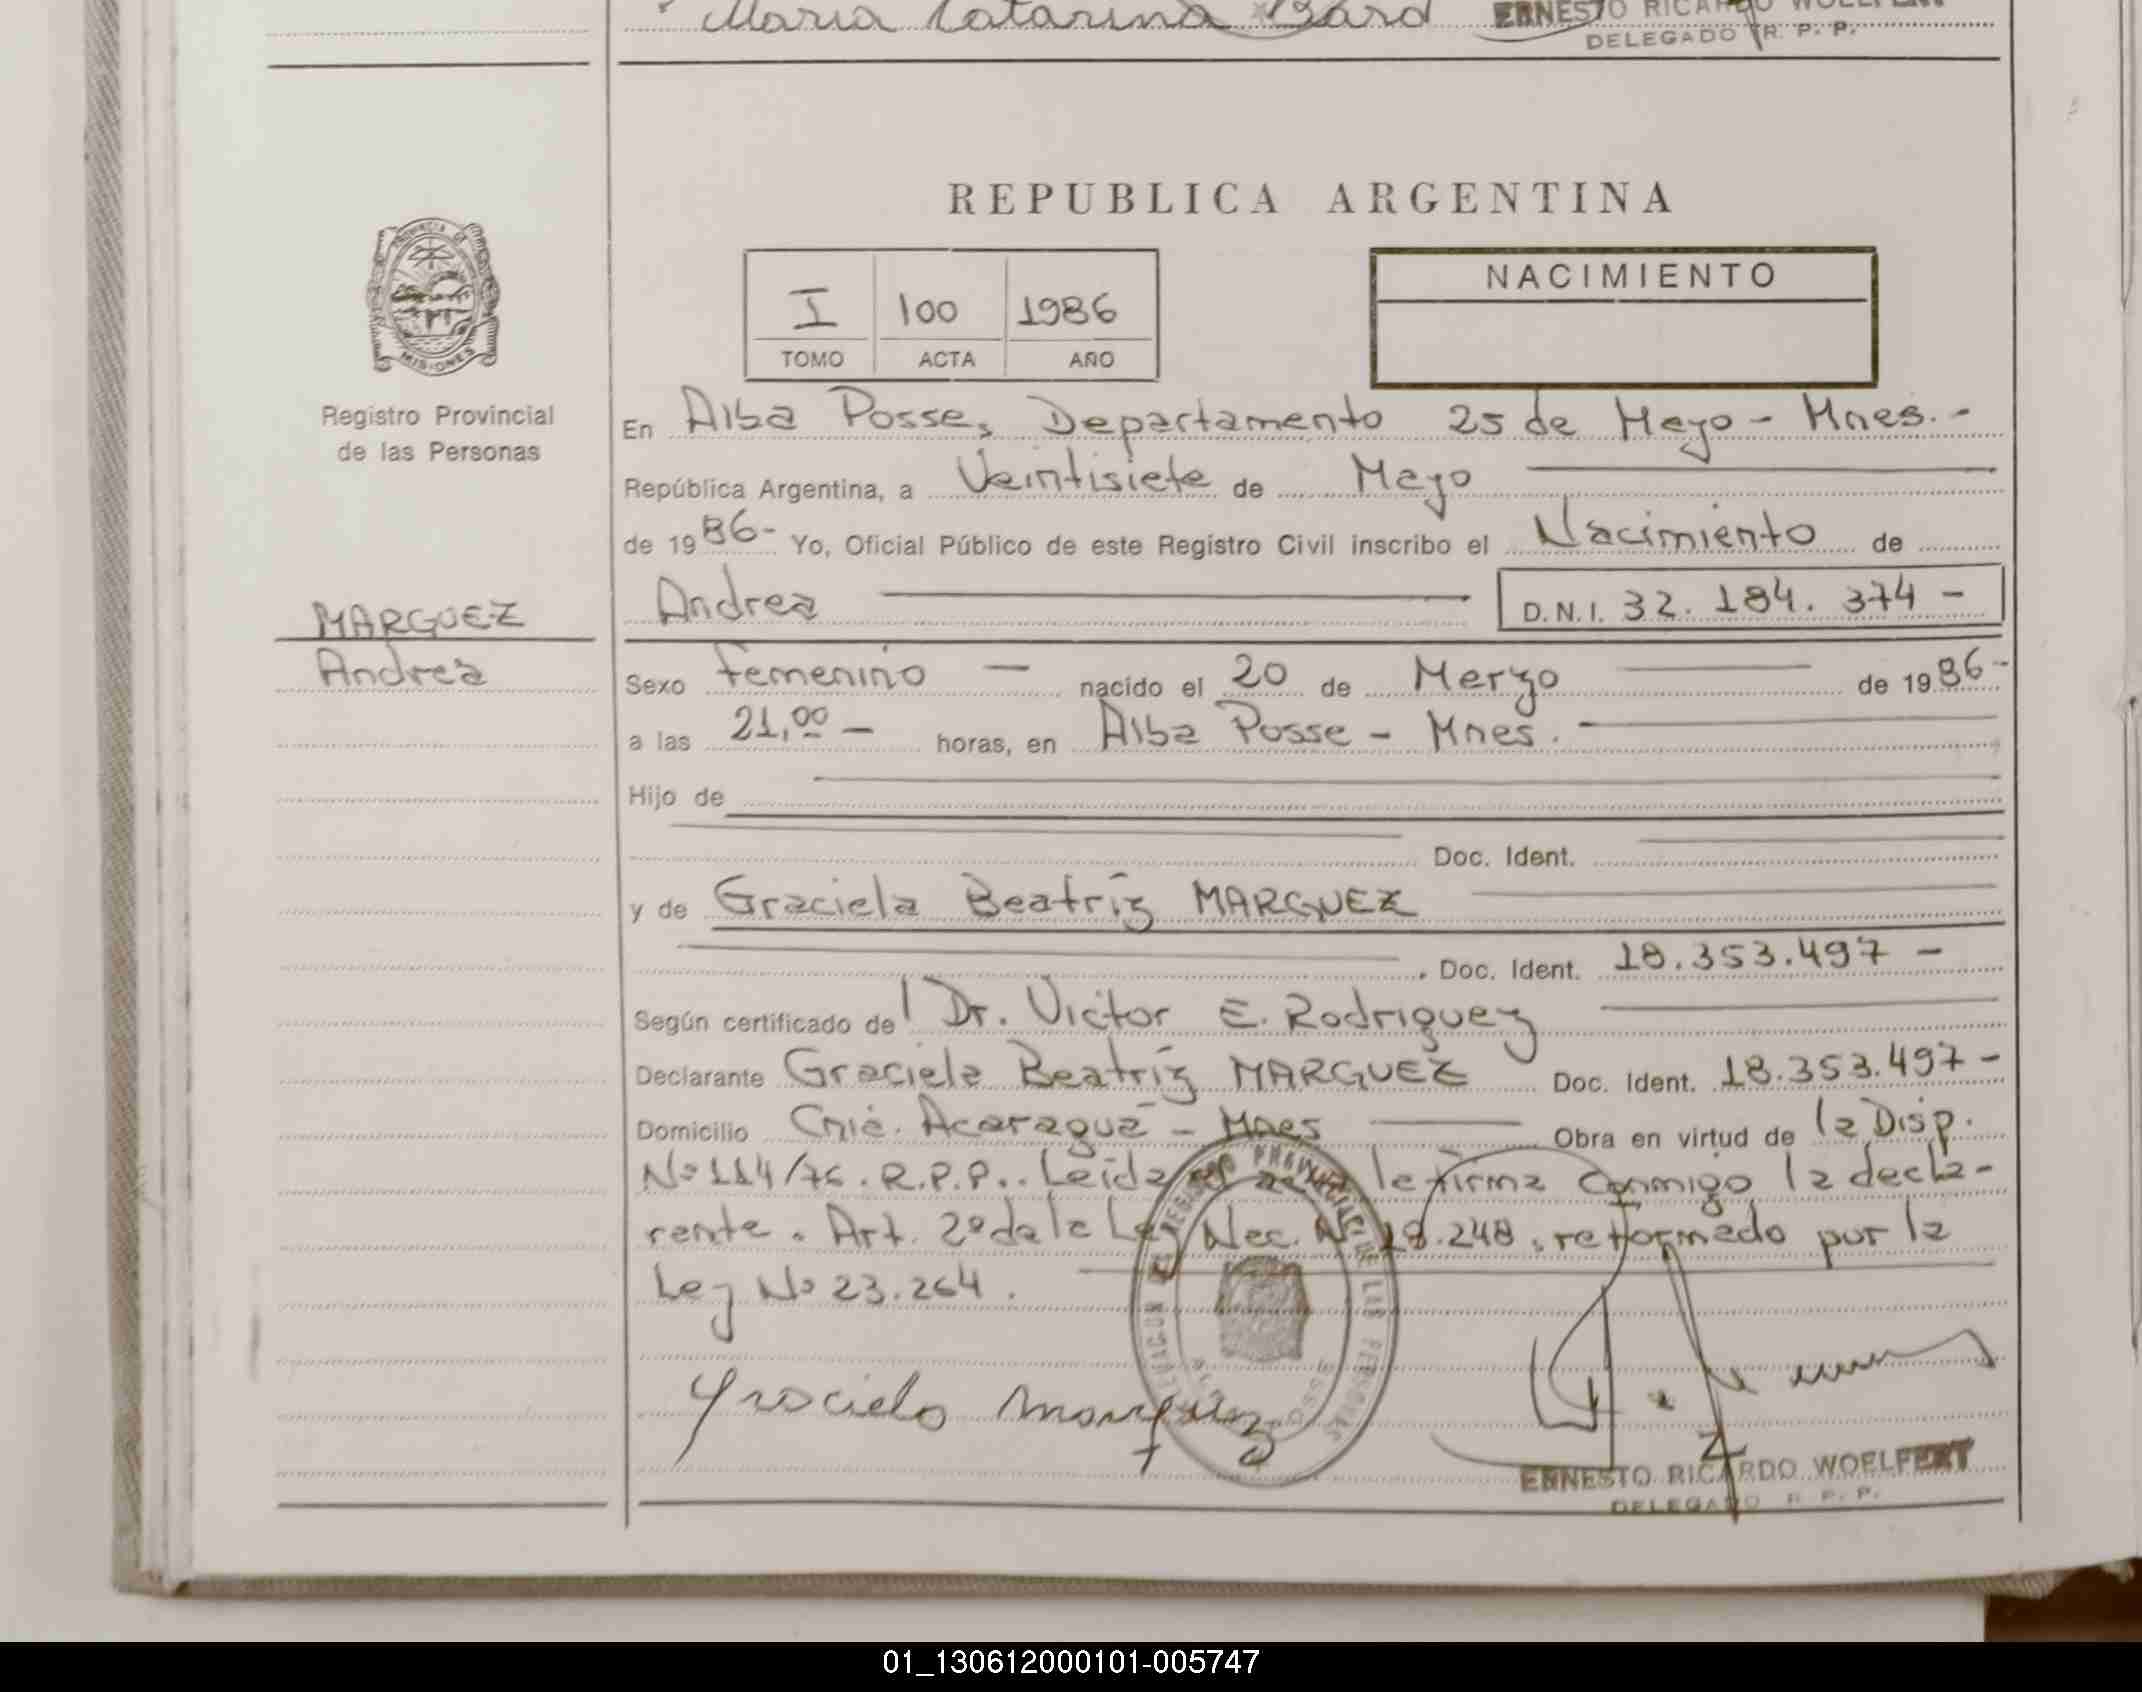 Maria Catarina Bard
ERNESTO RICARDO WOELFERT
DELEGADO R. P. P.
REPUBLICA ARGENTINA
PROVINCIA DE
MISIONES
I 100 1986
TOMO ACTA AÑO
NACIMIENTO
Registro Provincial
de las Personas
En Alba Posse, Departamento 25 de Mayo - Mnes. -
República Argentina, a Veintisiete de Mayo
de 1986- Yo, Oficial Público de este Registro Civil inscribo el Nacimiento de
Andrea D.N.I. 32.184.374 -
MARQUEZ
Andrea
Sexo femenino — nacido el 20 de Marzo de 1986-
a las 21,00 — horas, en Alba Posse - Mnes.
Hijo de
Doc. Ident.
y de Graciela Beatriz MARQUEZ
Doc. Ident. 18.353.497 -
Según certificado del Dr. Victor E. Rodriguez
Declarante Graciela Beatriz MARQUEZ Doc. Ident. 18.353.497-
Domicilio Cnia. Acaragua - Mnes Obra en virtud de la Disp.
Nº 114/76. R.P.P.. Leida el acta la firma conmigo la decla-
rante. Art. 2º de la Ley Nac. Nº 18.248, reformado por la
Ley Nº 23.264.
REGISTRO PROVINCIAL DE LAS PERSONAS
ALBA POSSE
Graciela Marquez
ERNESTO RICARDO WOELFERT
DELEGADO R. P. P.
01_130612000101-005747